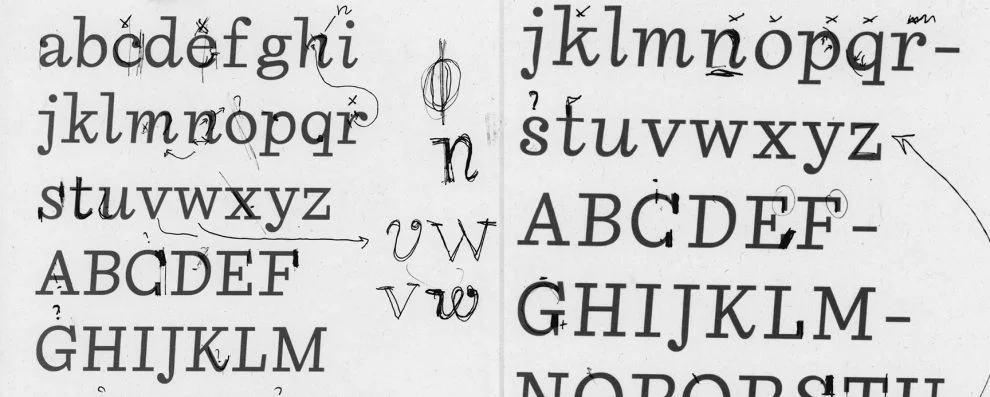 abcdefghi
n
jklmnopqr
n
stuvwxyz
vw
ABCDEF
vw
?
GHIJKLM
jklmnopqr-
?
stuvwxyz
ABCDEF-
GHIJKLM-
NOPQRSTU